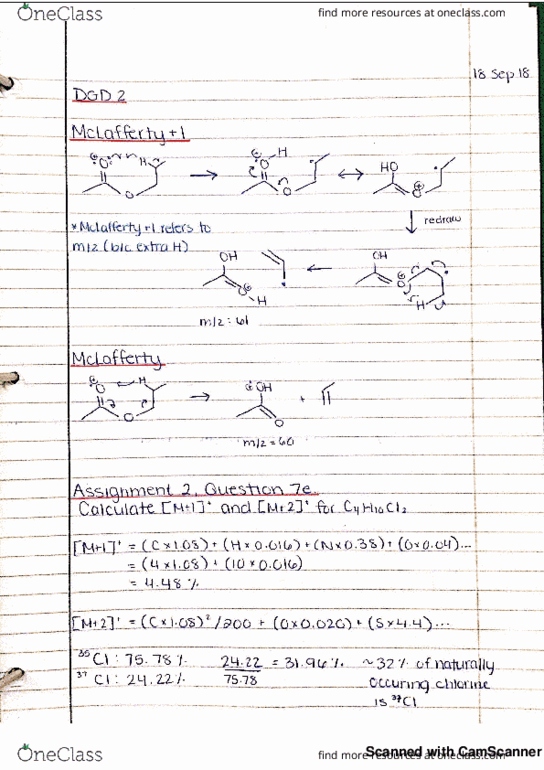 OneClass
find more resources at oneclass.com
18 Sep 18
DGD 2
McLafferty +1
O H
O
O H
O
HO
O
redraw
* McLafferty +1 refers to
m/z (b/c extra H)
OH
O H
OH
O
H
m/z = 61
McLafferty
O H
O
OH
O
+
m/z = 60
Assignment 2, Question 7e
Calculate [M+1]⁺ and [M+2]⁺ for C₄H₁₀Cl₂
[M+1]⁺ = (C x 1.08) + (H x 0.016) + (N x 0.38) + (O x 0.04)...
= (4 x 1.08) + (10 x 0.016)
= 4.48 %
[M+2]⁺ = (C x 1.08)²/200 + (O x 0.020) + (S x 4.4)...
³⁵Cl : 75.78 % 24.22 = 31.96 % ~32 % of naturally
³⁷Cl : 24.22 % 75.78 occuring chlorine
is ³⁷Cl
OneClass
find more resources at oneclass.com
Scanned with CamScanner